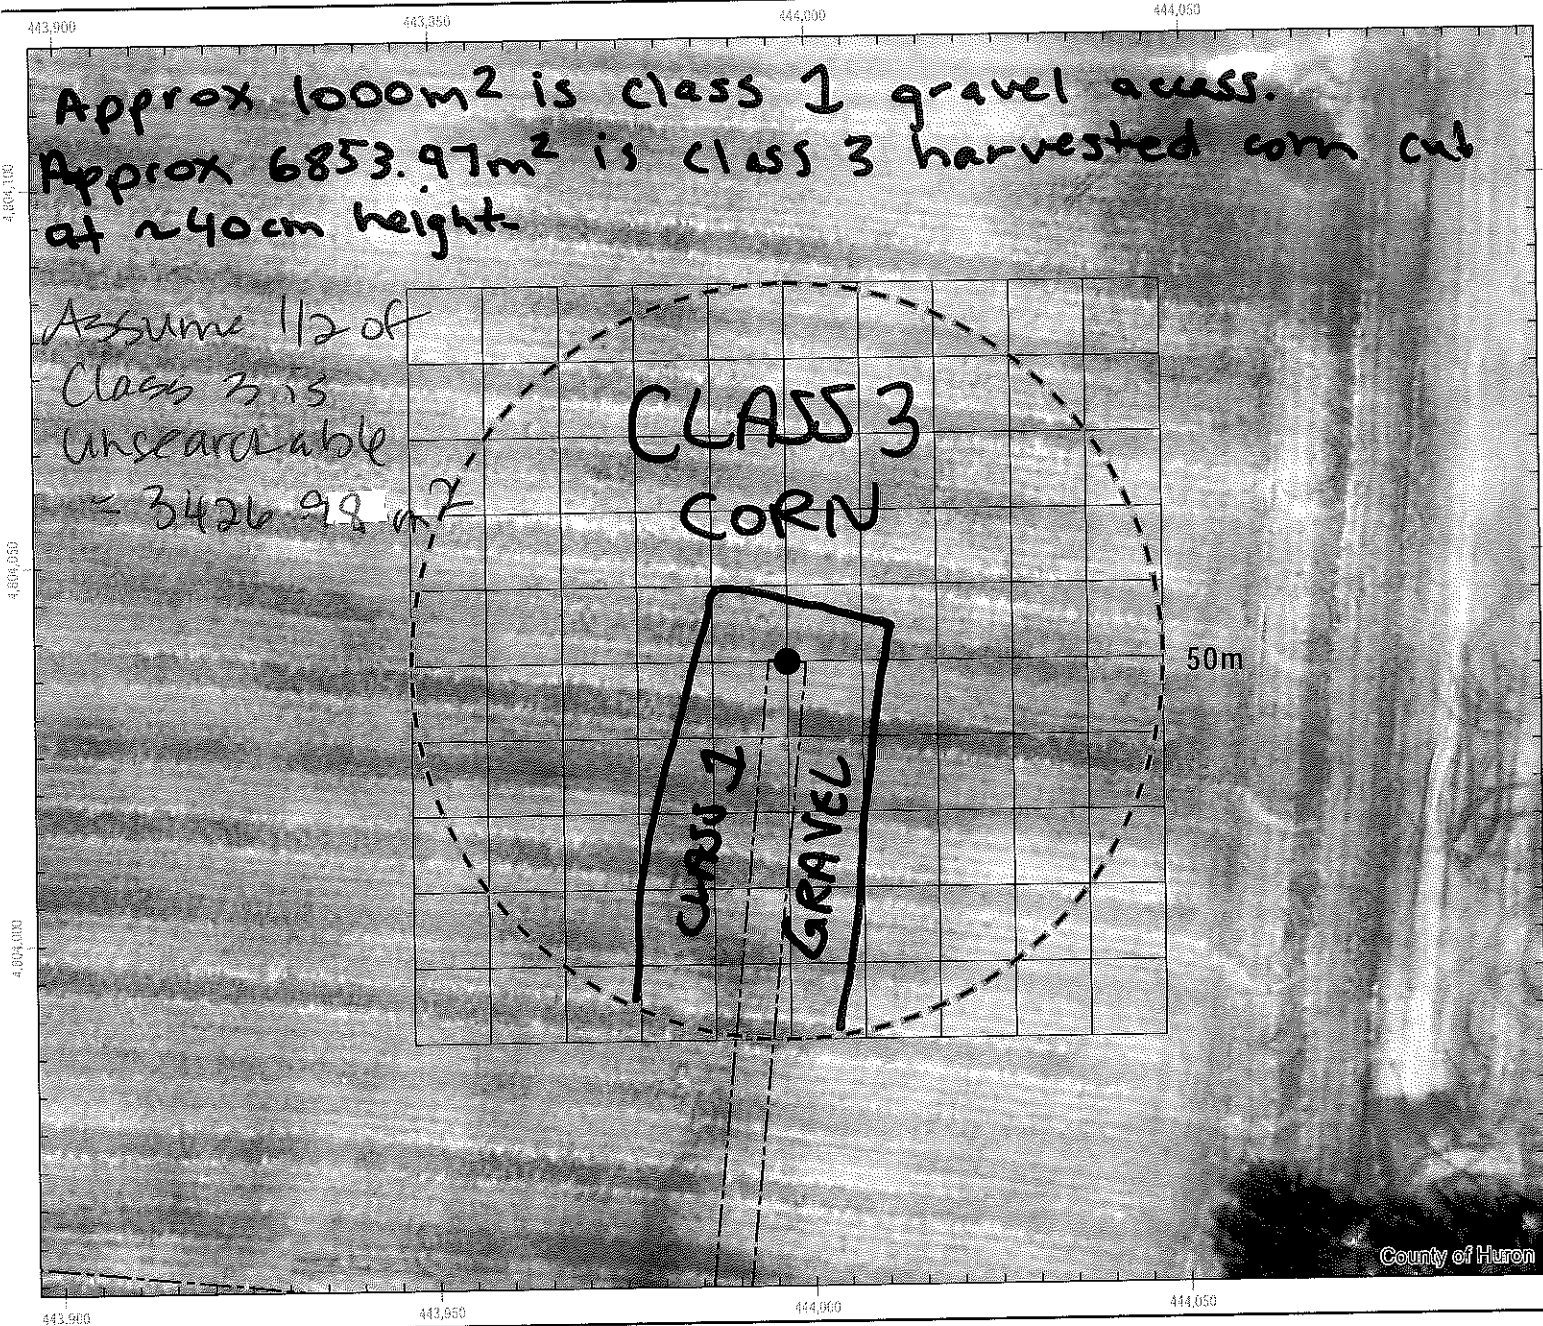 443,900 443,950 444,000 444,050
Approx 1000m² is class 1 gravel access.
Approx 6853.97m² is class 3 harvested corn cut
at ~40cm height.
4,804,100
Assume 1/2 of
Class 3 is
unsearchable
= 3426.98 m²
CLASS 3
CORN
4,804,050
50m
CLASS 1
GRAVEL
4,804,000
County of Huron
443,900 443,950 444,000 444,050